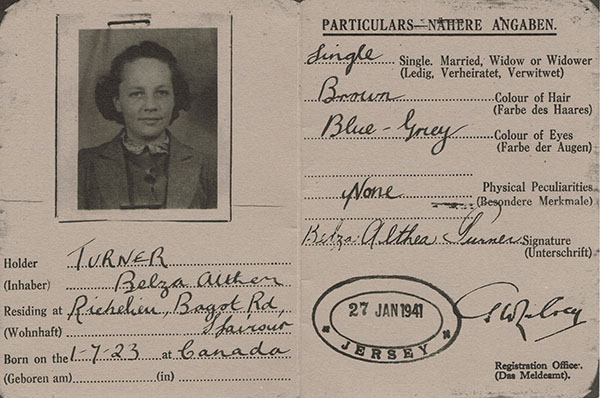 Holder TURNER
(Inhaber) Belza Althea
Residing at Richelieu, Bagot Rd,
(Wohnhaft) S Saviour
Born on the 1-7-23 at Canada
(Geboren am) (in)
PARTICULARS—NÄHERE ANGABEN.
Single Single. Married, Widow or Widower
(Ledig, Verheiratet, Verwitwet)
Brown Colour of Hair
(Farbe des Haares)
Blue-Grey Colour of Eyes
(Farbe der Augen)
None Physical Peculiarities
(Besondere Merkmale)
Belza Althea Turner Signature
(Unterschrift)
27 JAN 1941
JERSEY
Registration Officer.
(Das Meldeamt).